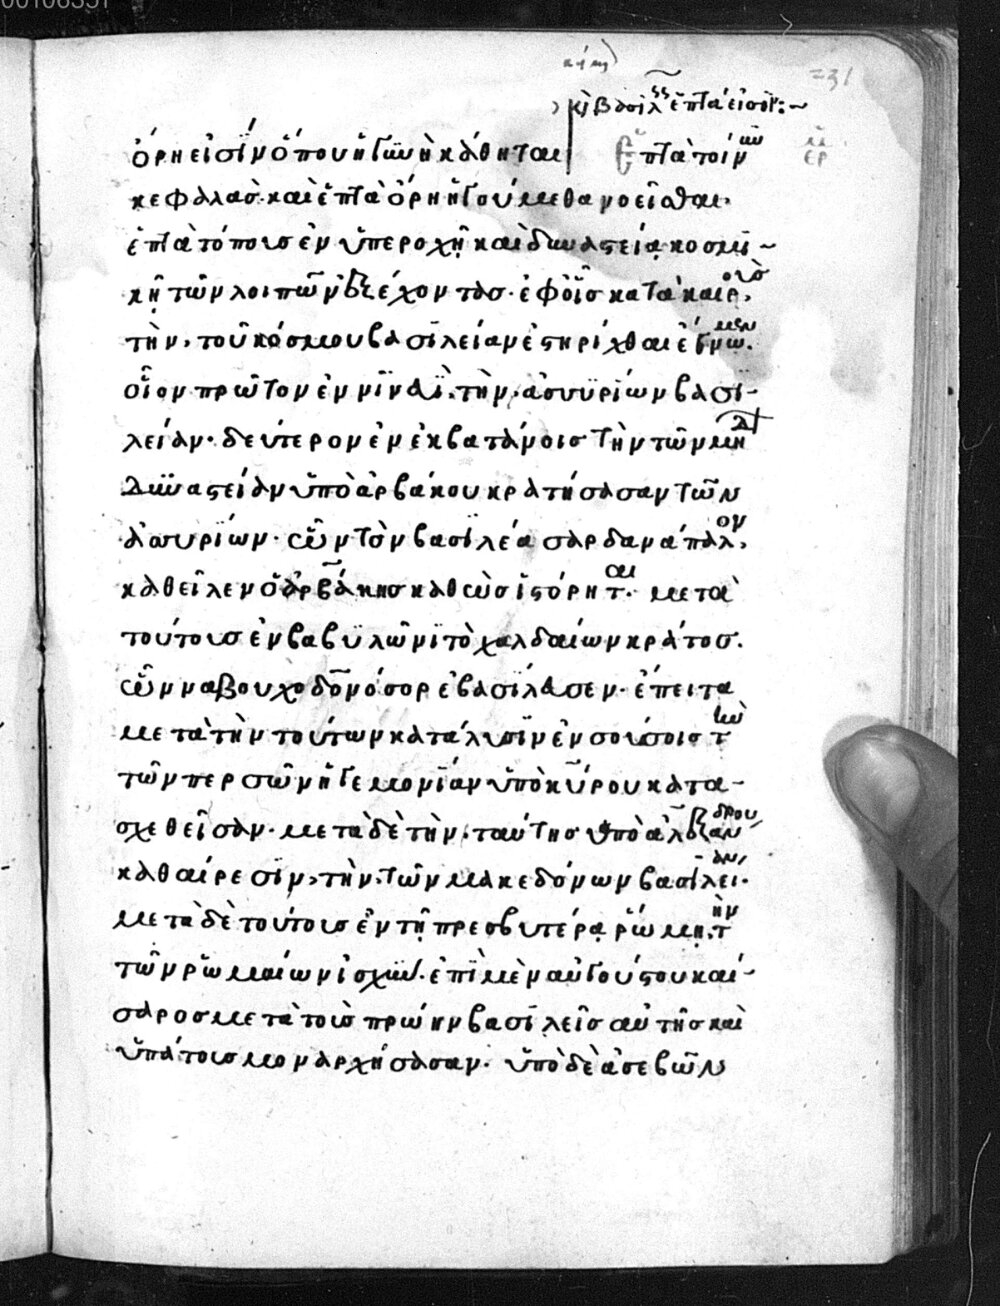 κὶ βασιλεῖς ἑπτὰ εἰσὶν:~
ὄρη εἰσὶν ὅπου ἡ γυνὴ κάθηται Ἑπτὰ τοίνυν
κεφαλὰς. καὶ ἑπτὰ ὄρη ἡγούμεθα νοεῖσθαι.
ἑπτὰ τόπους ἐν ὑπεροχῇ καὶ δυναστείᾳ κοσμι~
κῇ τῶν λοιπῶν ἐξέχοντας. ἐφ οἷς κατὰ καιροὺς
τὴν τοῦ κόσμου βασιλείαν ἐστηρίχθαι ἔγνωμεν.
οἷον πρῶτον ἐν νινευῒ τὴν ἀσυρίων βασι-
λείαν. δεύτερον ἐν ἐκβατάνοις τὴν τῶν μήδ
δυναστείαν ὑπὸ ἀρβάκου κρατήσασαν τῶν
ἀσυρίων. ὧν τὸν βασιλέα σαρδανάπαλον
καθεῖλεν ὁ ἀρβάκης καθὼς ἱστόρηται. μετὰ
τούτους ἐν βαβυλῶνι τὸ χαλδαίων κράτος.
ὧν ναβουχοδονόσορ ἐβασίλευσεν. ἔπειτα
μετὰ τὴν τούτων κατάλυσιν ἐν σούσοις τὴν
τῶν περσῶν ἡγεμονίαν ὑπὸ κύρου κατα-
σχεθεῖσαν. μετὰ δὲ τὴν ταύτης ὑπὸ ἀλεξάνδρου
καθαίρεσιν, τὴν τῶν μακεδόνων βασιλείαν.
μετὰ δὲ τούτους ἐν τῇ πρεσβυτέρᾳ ῥώμῃ τὴν
τῶν ῥωμαίων ἰσχὺν. ἐπὶ μὲν αὐγούστου καί-
σαρος μετὰ τοὺς πρώην βασιλεῖς αὐτῆς καὶ
ὑπάτους μοναρχήσασαν. ὑπὸ δὲ ἀσεβῶν